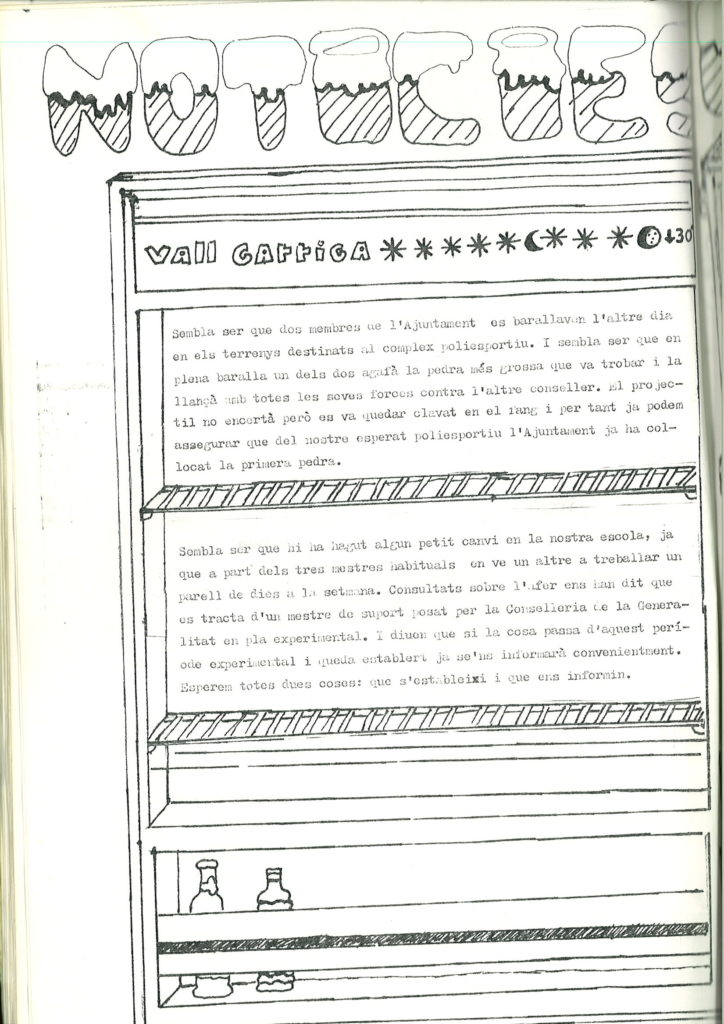 NOTICIES
Vall Carriga ******☾***☽↓30
Sembla ser que dos membres de l'Ajuntament es barallaven l'altre dia
en els terrenys destinats al complex poliesportiu. I sembla ser que en
plena baralla un dels dos agafà la pedra més grossa que va trobar i la
llançà amb totes les seves forces contra l'altre conseller. El projec-
til no encertà però es va quedar clavat en el fang i per tant ja podem
assegurar que del nostre esperat poliesportiu l'Ajuntament ja ha col-
locat la primera pedra.
Sembla ser que hi ha hagut algun petit canvi en la nostra escola, ja
que a part dels tres mestres habituals en ve un altre a treballar un
parell de dies a la setmana. Consultats sobre l'afer ens han dit que
es tracta d'un mestre de suport posat per la Conselleria de la Genera-
litat en pla experimental. I diuen que si la cosa passa d'aquest perí-
ode experimental i queda establert ja se'ns informarà convenientment.
Esperem totes dues coses: que s'estableixi i que ens informin.